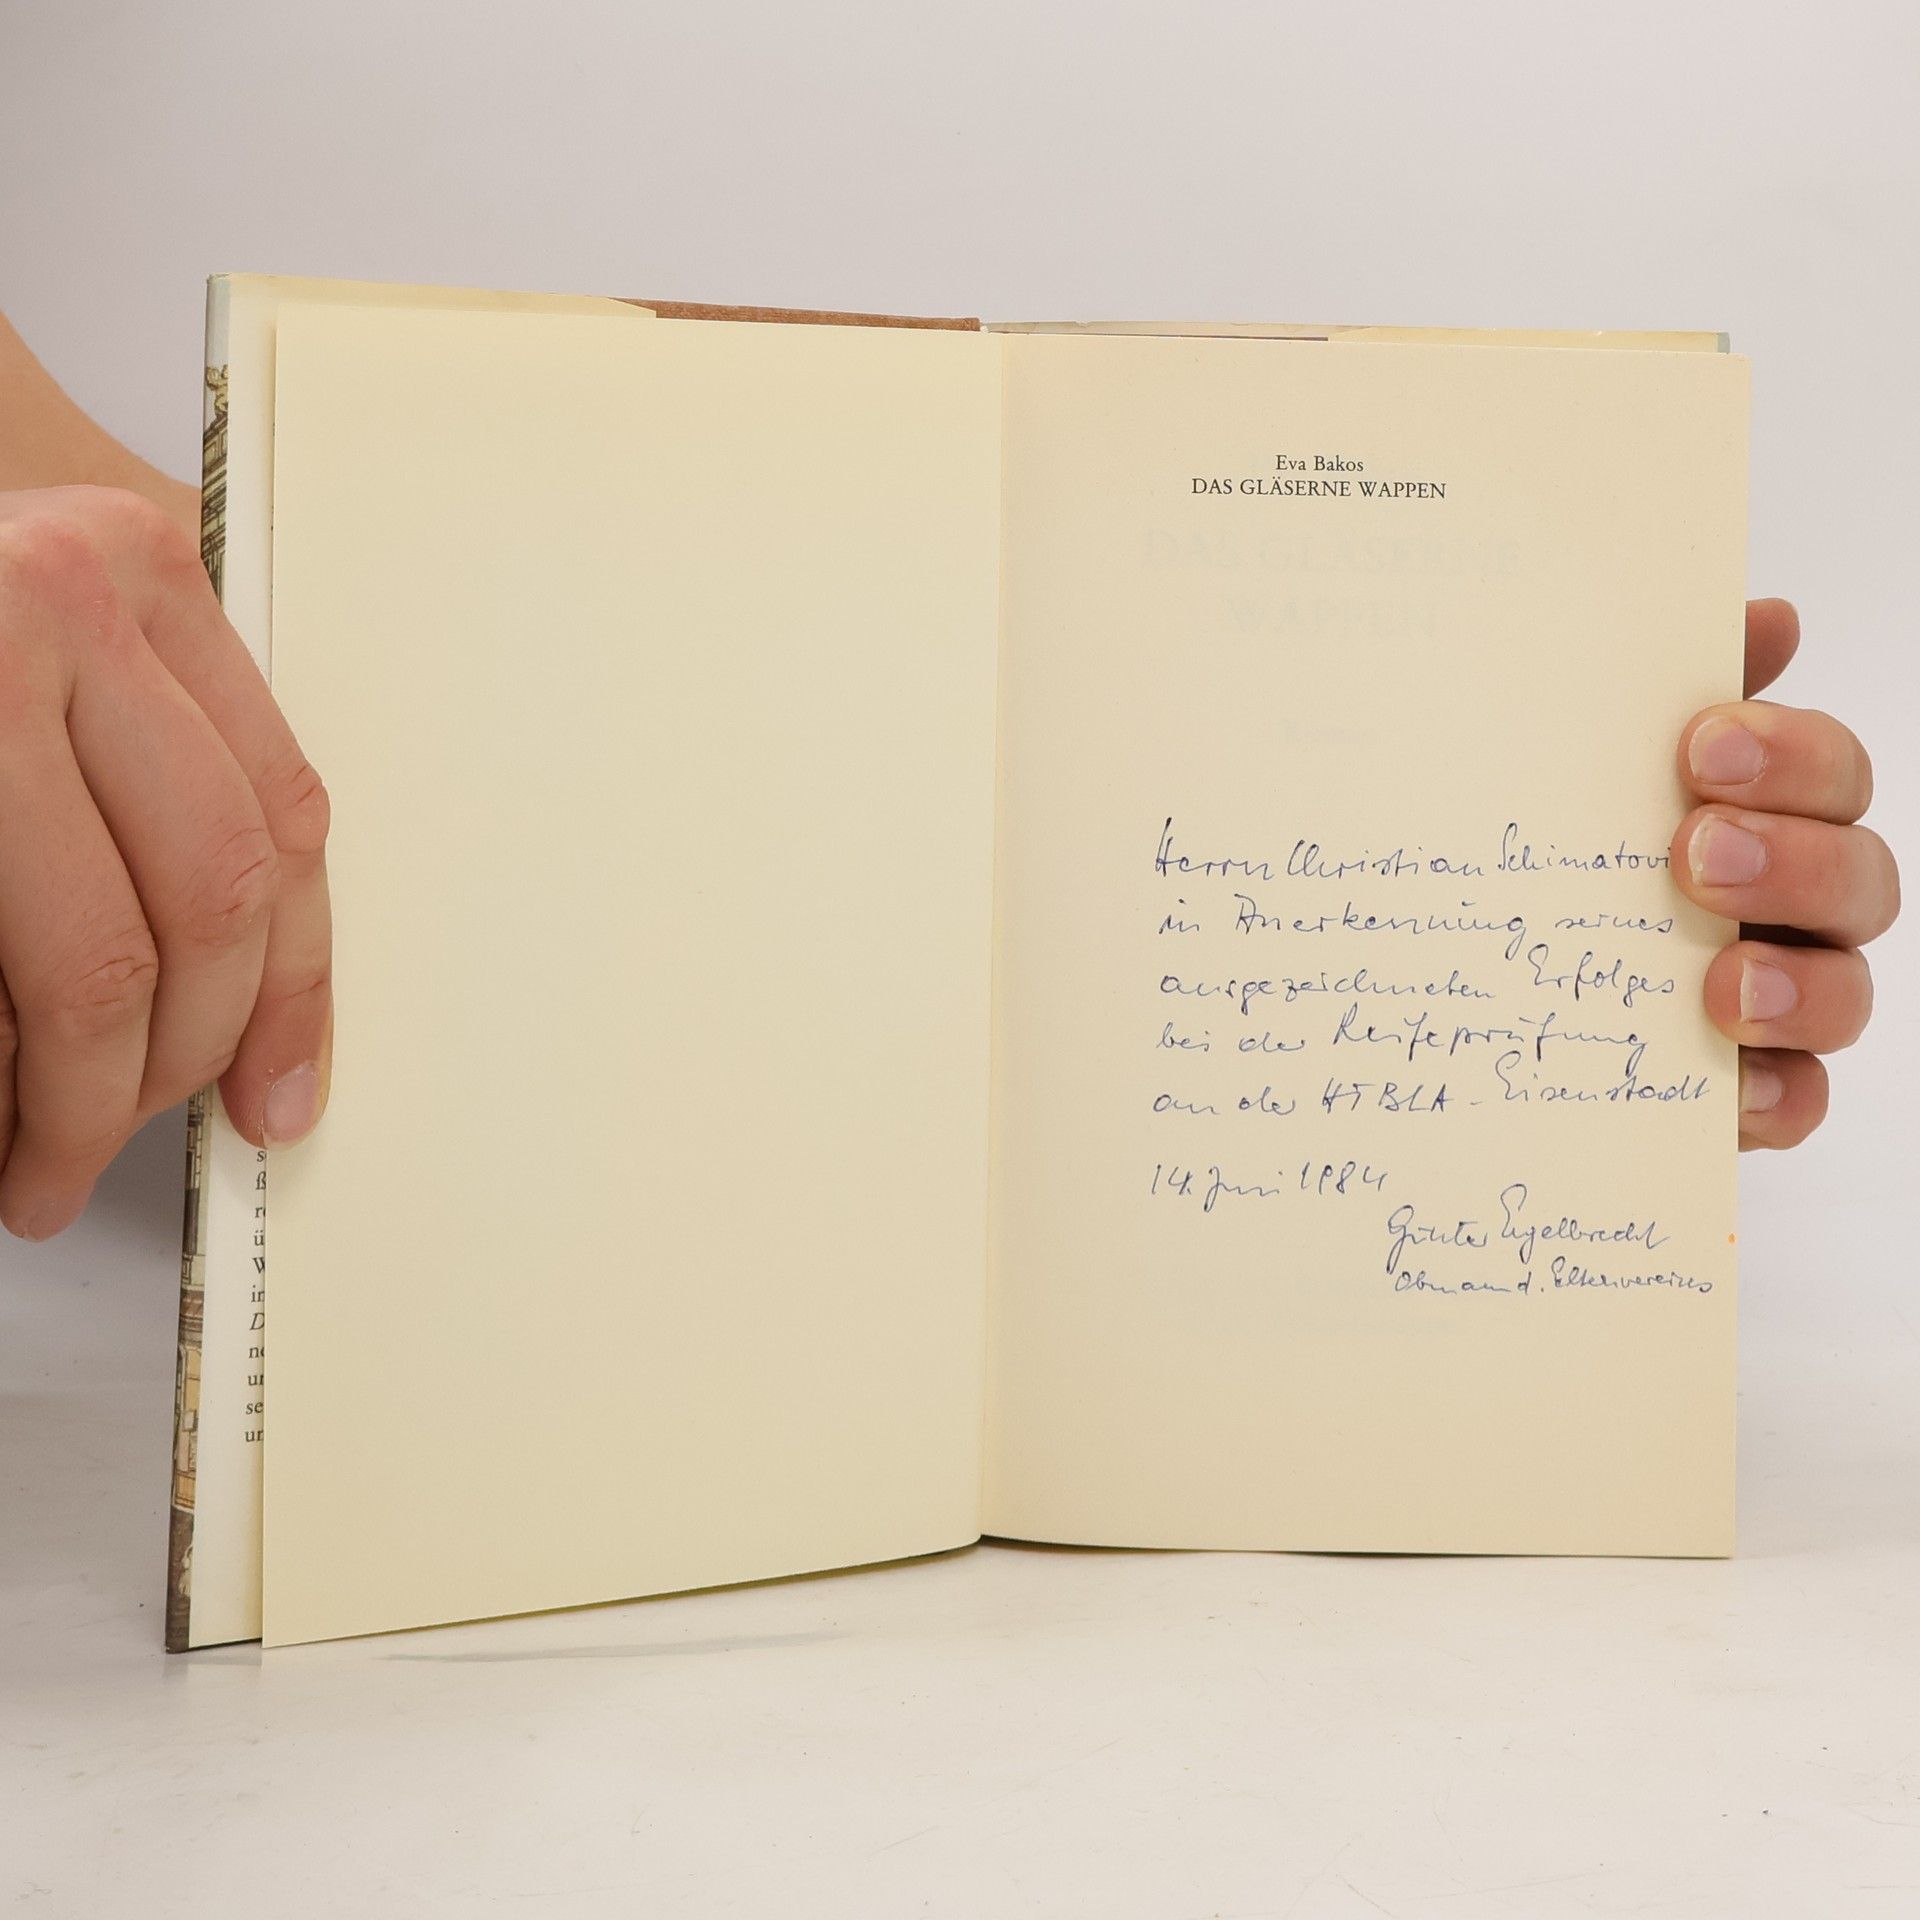 Eva Bakos
DAS GLÄSERNE WAPPEN
DAS GLÄSERNE
WAPPEN
Roman
Herrn Christian Schimatovi
in Anerkennung seines
ausgezeichneten Erfolges
bei der Reifeprüfung
an der HTBLA - Eisenstadt
14. Juni 1984
Günter Engelbrecht
Obmann d. Elternvereins
s
ß
r
ü
W
in
D
n
u
se
un